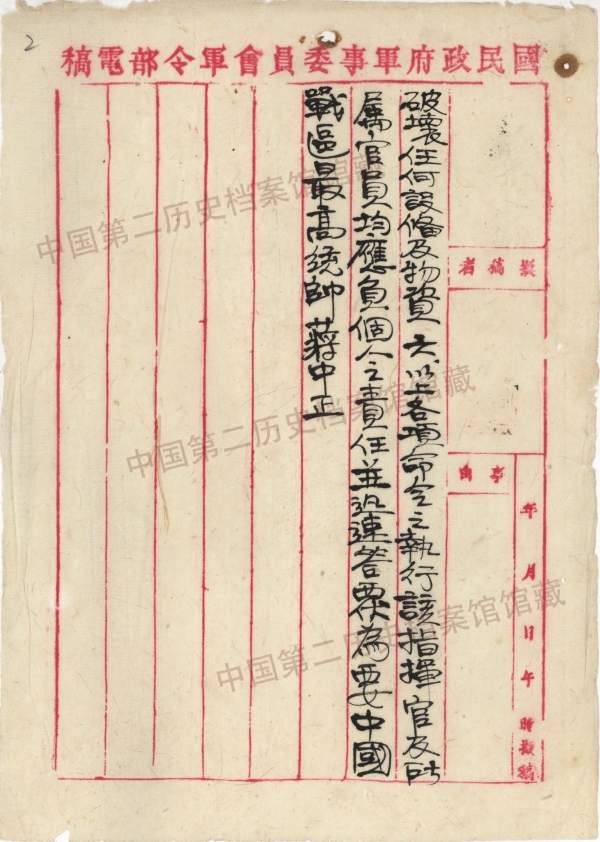 2
國民政府軍事委員會軍令部電稿
擬稿者
事由
年 月 日 午 時擬稿
破壞任何設備及物資 六、以上各項命令之執行該指揮官及所
屬官員均應負個人之責任並迅速答覆為要中國
戰區最高統帥蔣中正
中国第二历史档案馆馆藏
中国第二历史档案馆馆藏
中国第二历史档案馆馆藏